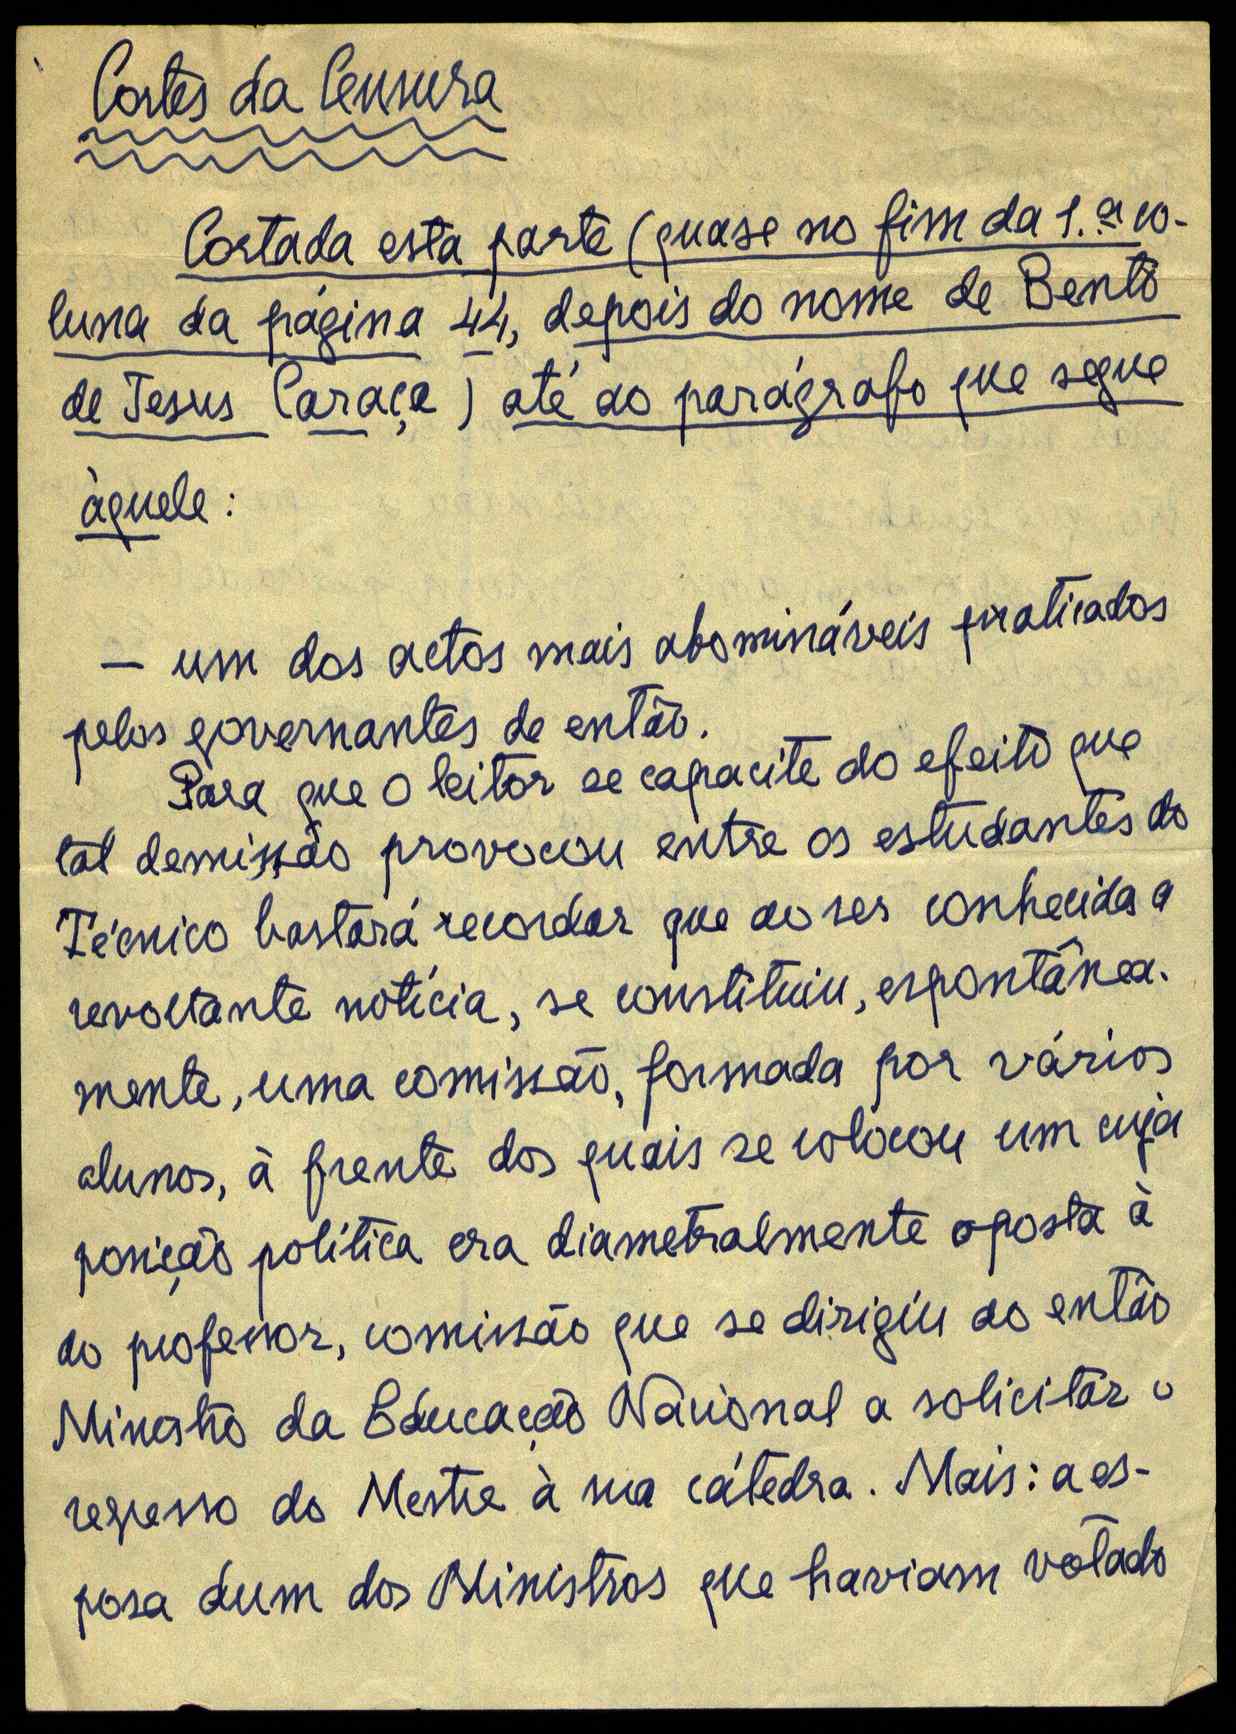 Cortes da Censura
Cortada esta parte (quase no fim da 1.ª co-
luna da página 44, depois do nome de Bento
de Jesus Caraça) até ao parágrafo que segue
àquele:
— um dos actos mais abomináveis praticados
pelos governantes de então.
Para que o leitor se capacite do efeito que
tal demissão provocou entre os estudantes do
Técnico bastará recordar que ao ser conhecida a
revoltante notícia, se constituiu, espontânea-
mente, uma comissão, formada por vários
alunos, à frente dos quais se colocou um cuja
posição política era diametralmente oposta à
do professor, comissão que se dirigiu ao então
Ministro da Educação Nacional a solicitar o
regresso do Mestre à sua cátedra. Mais: a es-
posa dum dos Ministros que haviam votado